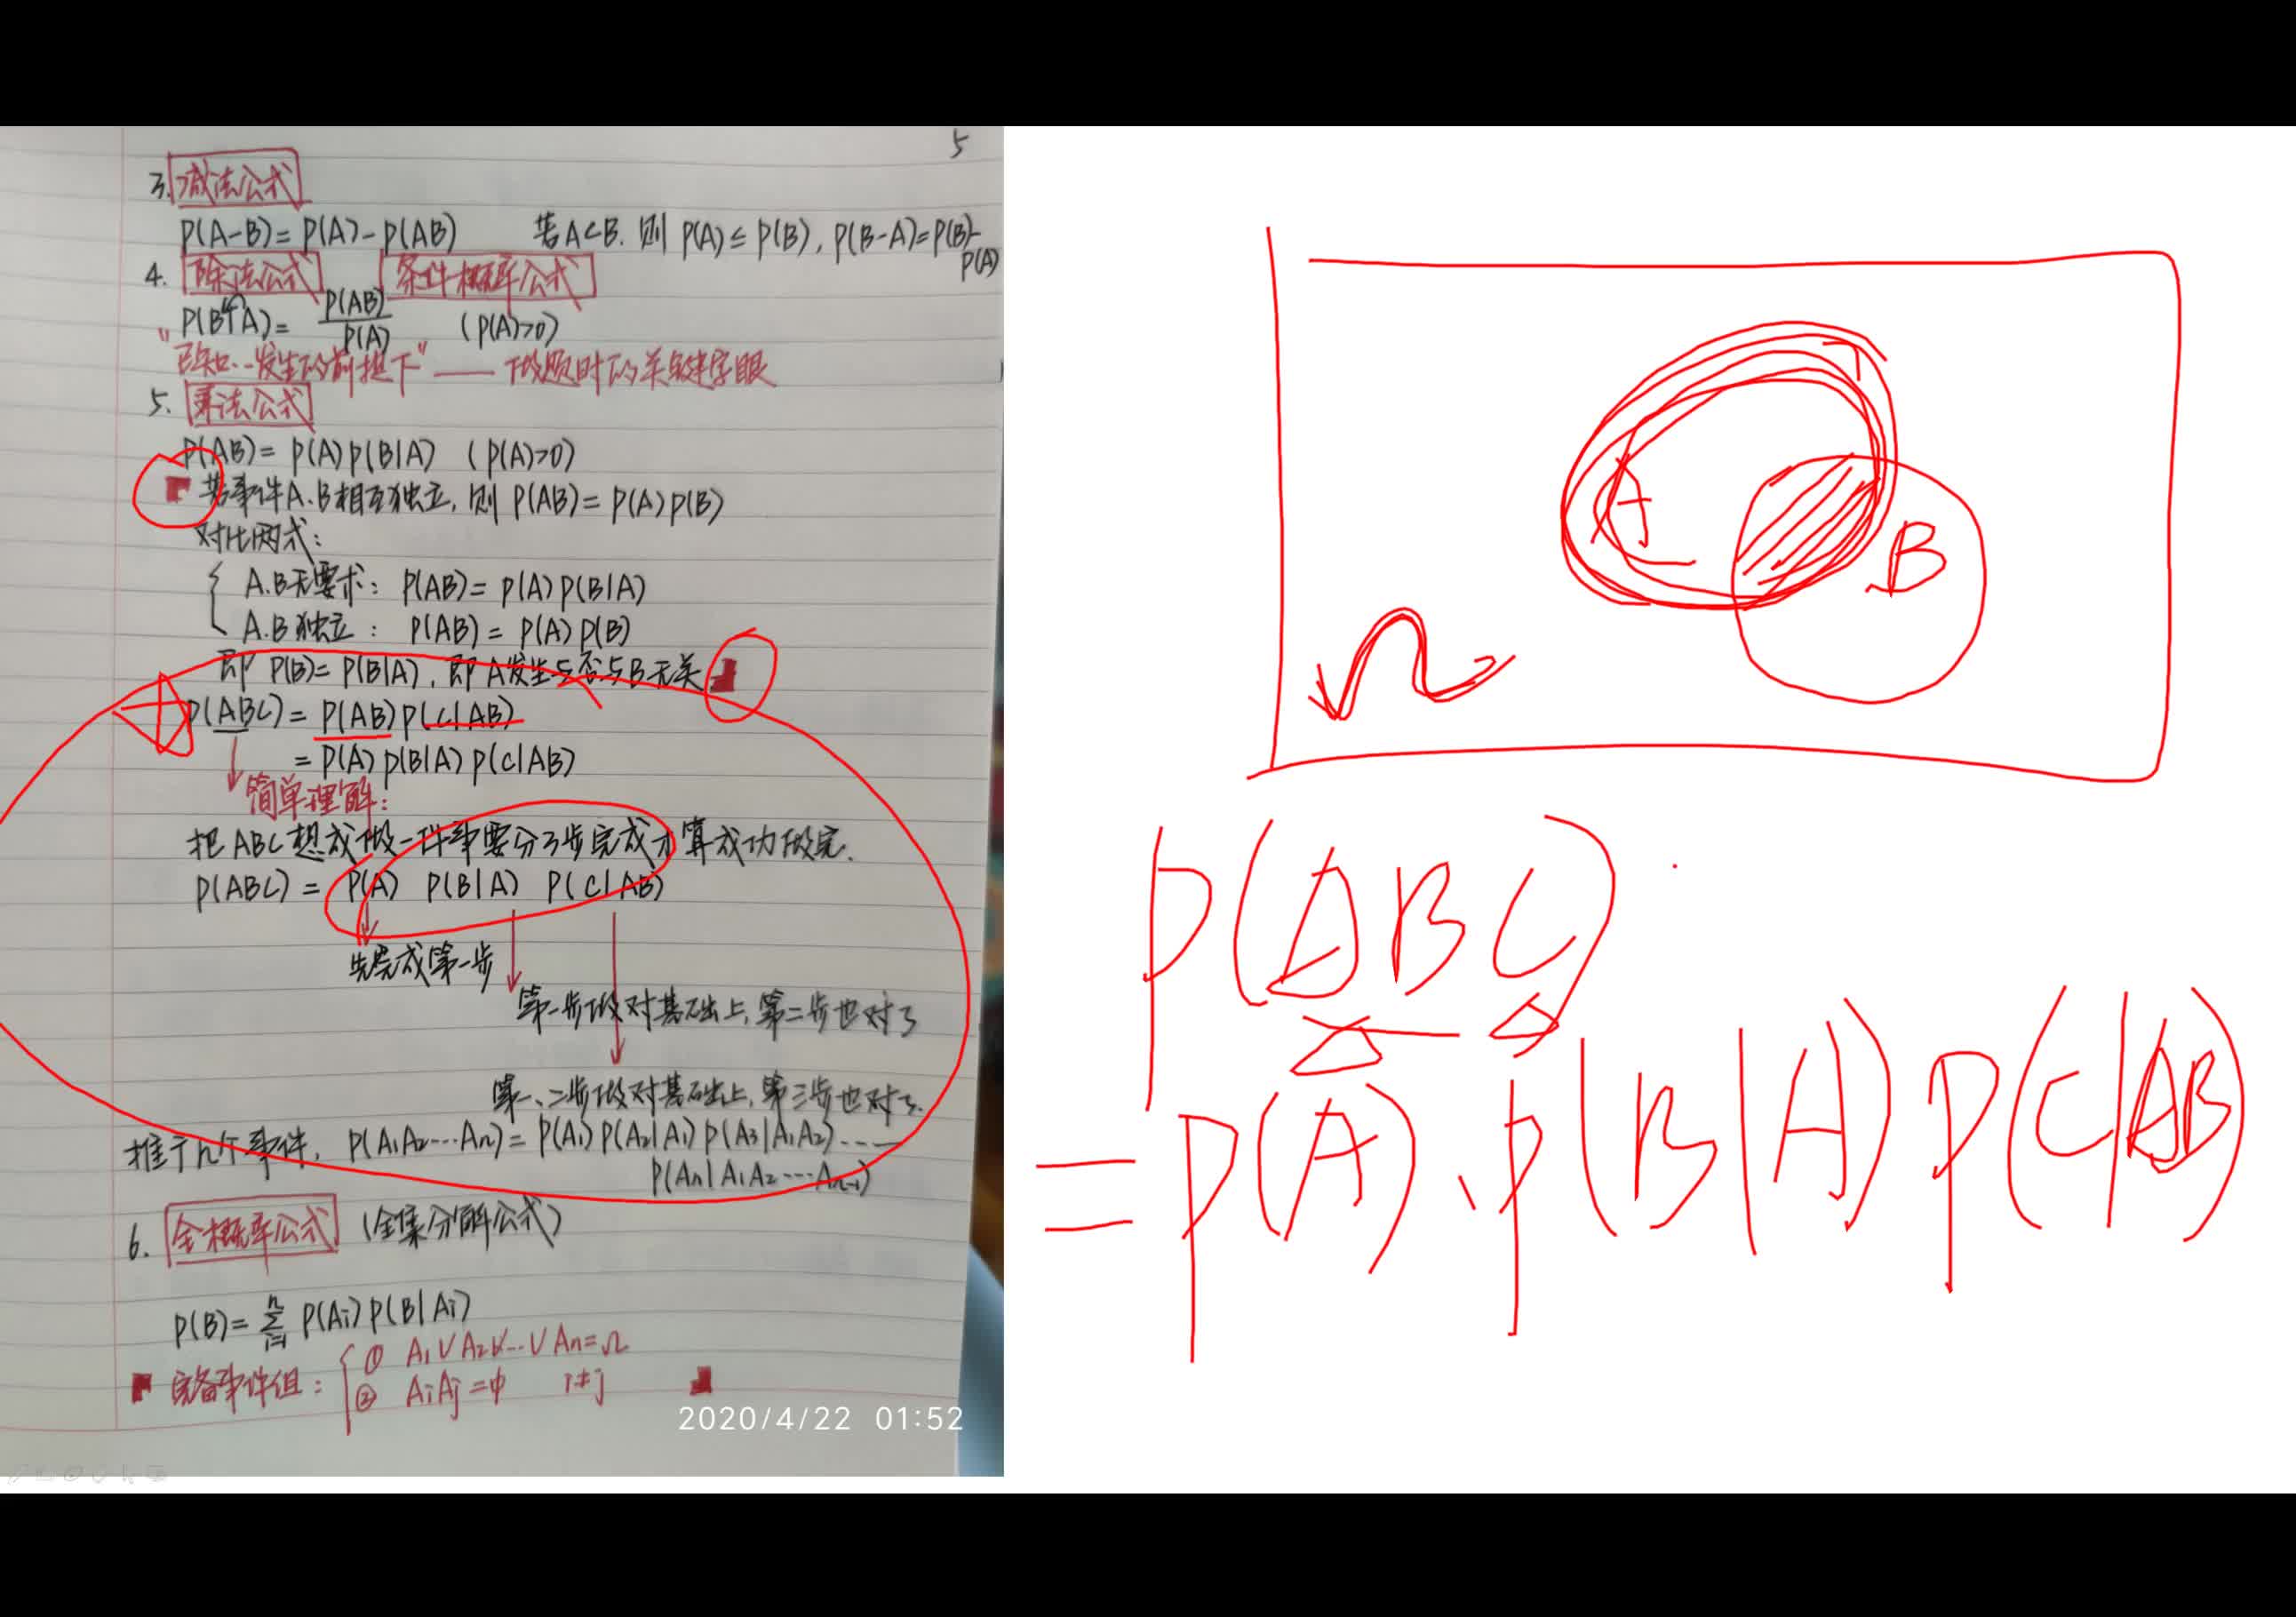 5
3. 减法公式
P(A-B)=P(A)-P(AB) 若A⊂B, 则 P(A)≤P(B), P(B-A)=P(B)-P(A)
4. 除法公式 条件概率公式
P(B|A)= P(AB)/P(A) (P(A)>0)
"已知…发生的前提下" —— 做题时的关键字眼
5. 乘法公式
P(AB)= P(A)P(B|A) (P(A)>0)
若事件A.B相互独立, 则 P(AB)= P(A)P(B)
对比两式:
A.B无要求: P(AB)= P(A)P(B|A)
A.B独立: P(AB)= P(A)P(B)
即 P(B)= P(B|A), 即A发生与否与B无关
P(ABC)= P(AB)P(C|AB)
= P(A)P(B|A)P(C|AB)
简单理解:
把ABC想成做一件事要分3步完成才算成功做完.
P(ABC)= P(A) P(B|A) P(C|AB)
先完成第一步
第一步做对基础上,第二步也对了
第一、二步做对基础上,第三步也对了.
推于n个事件, P(A1A2…An)= P(A1)P(A2|A1)P(A3|A1A2)……
P(An|A1A2…An-1)
6. 全概率公式 (全集分解公式)
P(B)= n∑i=1 P(Ai)P(B|Ai)
完备事件组: ① A1∪A2∪…∪An=Ω
② AiAj=φ i≠j
2020/4/22 01:52
A
B
Ω
P(ABC)
=P(A).P(B|A)P(C|AB)